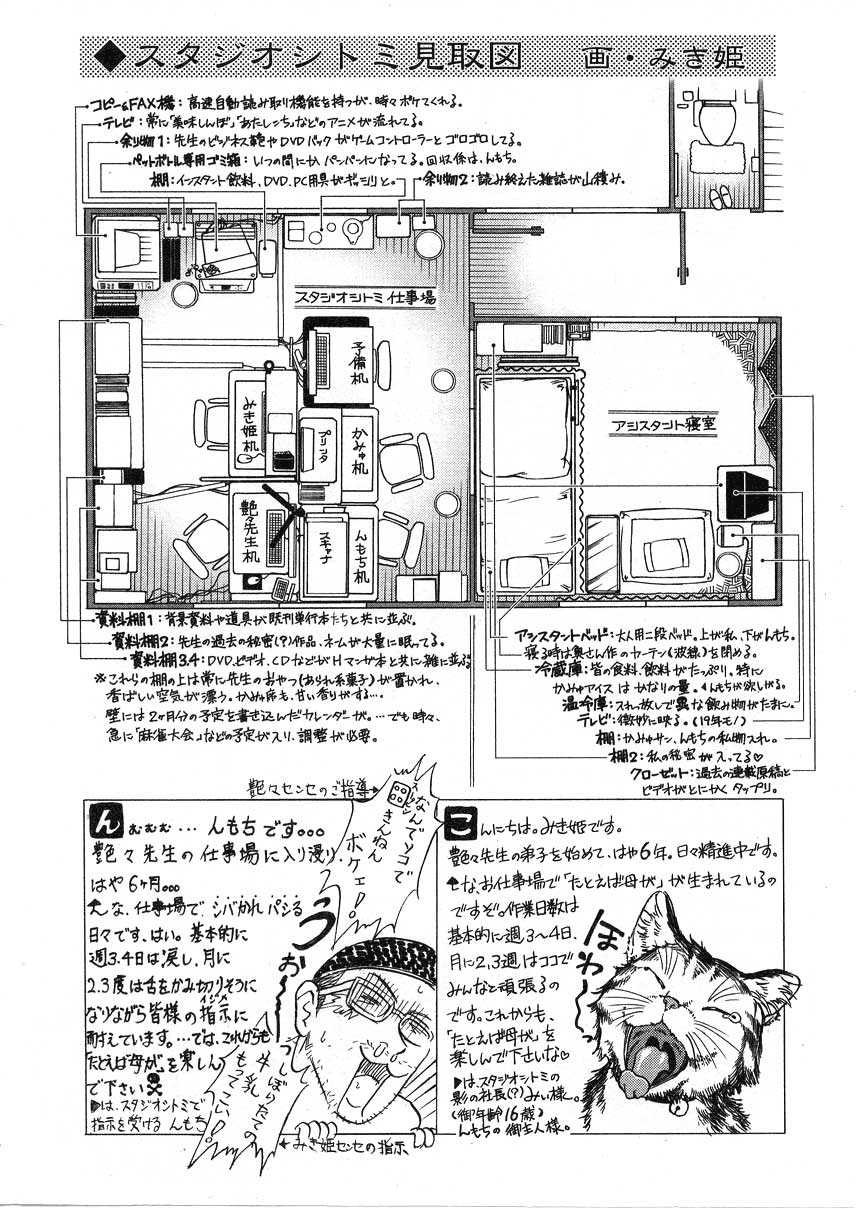 ◆スタジオシトミ見取図　画・みき姫
コピー&FAX機：高速自動読み取り機能を持つが、時々ボケてくれる。
テレビ：常に「美味しんぼ」「あたしンち」などのアニメが流れてる。
余り物1：先生のビジネス鞄やDVDパックがゲームコントローラーとゴロゴロしてる。
ペットボトル専用ゴミ箱：いつの間にかパンパンになってる。回収係は、んもち。
棚：インスタント飲料、DVD、PC用具がギッシリと。
余り物2：読み終えた雑誌が山積み。
スタジオシトミ仕事場
予備机
みき姫机
プリンタ
かみゅ机
艶々先生机
スキャナ
んもち机
アシスタント寝室
資料棚1：背景資料や道具が既刊単行本たちと共に並ぶ。
資料棚2：先生の過去の秘密(?)作品、ネームが大量に眠ってる。
資料棚3.4：DVD、ビデオ、CDなどがHマンガ本と共に雑に並ぶ。
※これらの棚の上は常に先生のおやつ(あられ系菓子)が置かれ、
香ばしい空気が漂う。かみゅ席も、甘い香りがする…。
壁には2ヶ月分の予定を書き込んだカレンダーが。…でも時々、
急に「麻雀大会」などの予定が入り、調整が必要。
アシスタントベッド：大人用二段ベッド。上が私、下がんもち。
寝る時は奥さん作のカーテン(波線)を閉める。
冷蔵庫：皆の食料、飲料がたっぷり。特に
かみゅアイスはかなりの量。んもちが欲しがる。
温冷庫：スれっ放しで異な飲み物がたまに。
テレビ：微妙に映る。(19年モノ)
棚：かみゅサン、んもちの私物入れ。
棚2：私の秘密が入ってる♡
クローゼット：過去の連載原稿と
ビデオがとにかくタップリ。
艶々センセのご指導→
なんでソコで
きんねん
ボケェ！
んむむむ…んもちです。。。
艶々先生の仕事場に入り浸り、
はや6ヶ月。。。
そんな、仕事場でシバかれパシる
日々です、はい。基本的に
週3.4日は涙し、月に
2.3度は舌をかみ切りそうに
なりながら皆様の指示に
イジメ
耐えています。…では、これからも
「たとえば母が」を楽しんで下さい
▶は、スタジオシトミで
指示を受けるんもち
うおー
しぼりたての
牛乳
もってこい！
←みき姫センセの指示
こんにちは。みき姫です。
艶々先生の弟子を始めて、はや6年。日々精進中です。
そんな、お仕事場で「たとえば母が」が生まれているの
ですぞ。作業日数は
基本的に週3〜4日、
月に2,3週はココで
みんなと頑張るの
です。これからも、
「たとえば母が」を
楽しんで下さいな♡
▶は、スタジオシトミの
影の社長(?)みい様。
(御年齢16歳)
んもちの御主人様。
ほわー〜っ